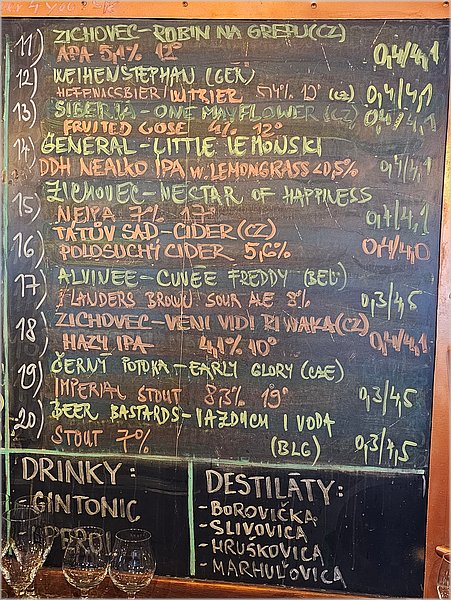 11) ZICHOVEC-ROBIN NA GREPU (CZ)
APA 5,1% 12° 0,4/4,1
12) WEIHENSTEPHAN (GER)
HEFEWEISSBIER/WITBIER 10° (CZ) 0,4/4,1
13) SIBERIA-ONE MAYFLOWER (CZ) 0,4/4,1
FRUITED GOSE 4% 12°
14) GENERAL-LITTLE LEMONSKI
DDH NEALKO IPA W. LEMONGRASS <0,5% 0,4/4,1
ZICHOVEC-NECTAR OF HAPPINESS
15) NEIPA 7% 17° 0,4/4,1
TÁTŮV SAD-CIDER (CZ)
16) POLOSUCHÝ CIDER 5,6% 0,4/4,0
17) ALVINEE-CUVEE FREDDY (BEL)
FLANDERS BROWN SOUR ALE 8% 0,3/4,5
18) ZICHOVEC-VENI VIDI RIWAKA (CZ)
HAZY IPA 4,1% 10° 0,4/4,1
19) ČERNÝ POTOKA-EARLY GLORY
IMPERIAL STOUT 8,3% 19° 0,3/4,5
20) BEER BASTARDS-VAZDUCH I VODA
STOUT 7% (BLG) 0,3/4,5
DRINKY:
-GINTONIC
DESTILÁTY:
-BOROVIČKA
-SLIVOVICA
-HRUŠKOVICA
-MARHUĽOVICA